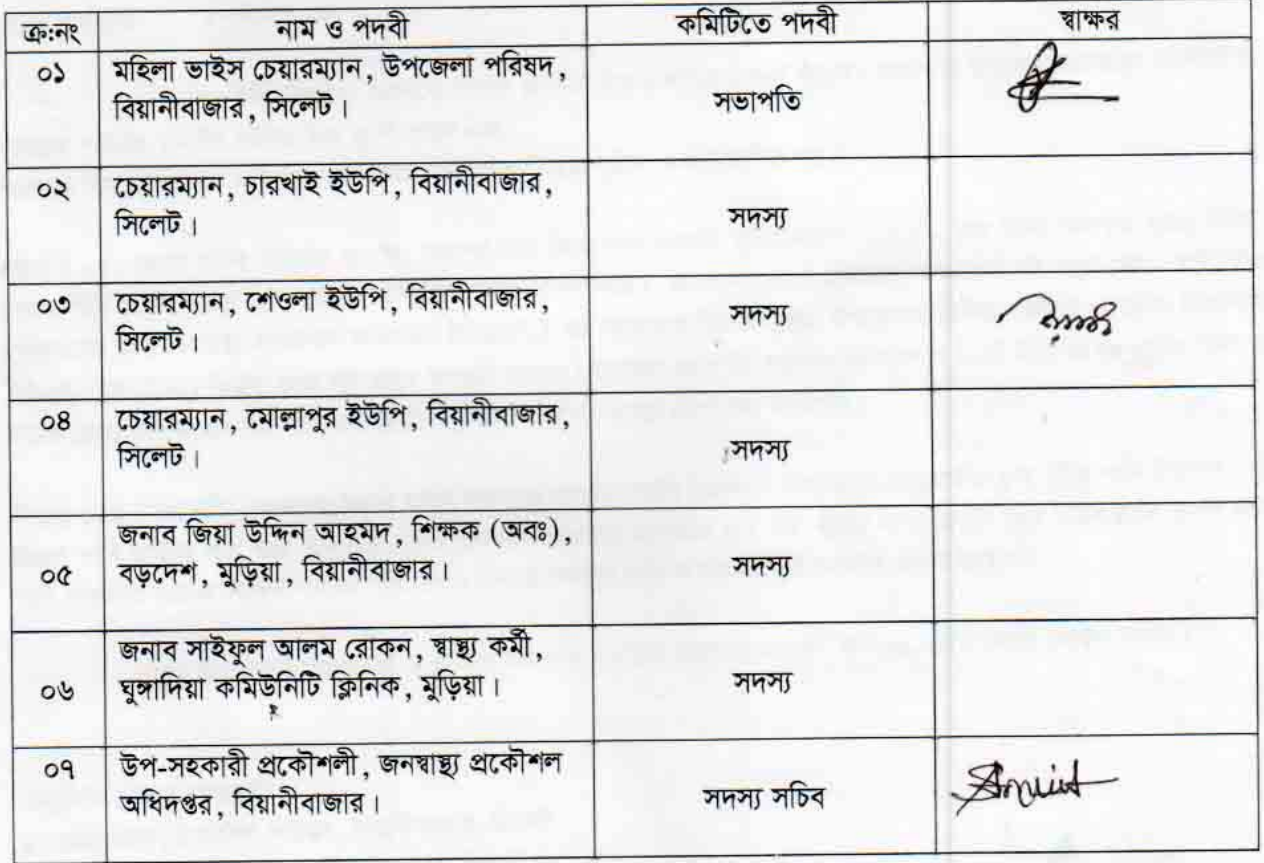 ক্র:নং নাম ও পদবী কমিটিতে পদবী স্বাক্ষর
০১ মহিলা ভাইস চেয়ারম্যান, উপজেলা পরিষদ,
বিয়ানীবাজার, সিলেট। সভাপতি
০২ চেয়ারম্যান, চারখাই ইউপি, বিয়ানীবাজার,
সিলেট। সদস্য
০৩ চেয়ারম্যান, শেওলা ইউপি, বিয়ানীবাজার,
সিলেট। সদস্য
০৪ চেয়ারম্যান, মোল্লাপুর ইউপি, বিয়ানীবাজার,
সিলেট। সদস্য
জনাব জিয়া উদ্দিন আহমদ, শিক্ষক (অবঃ),
০৫ বড়দেশ, মুড়িয়া, বিয়ানীবাজার। সদস্য
জনাব সাইফুল আলম রোকন, স্বাস্থ্য কর্মী,
০৬ ঘুঙ্গাদিয়া কমিউনিটি ক্লিনিক, মুড়িয়া। সদস্য
০৭ উপ-সহকারী প্রকৌশলী, জনস্বাস্থ্য প্রকৌশল
অধিদপ্তর, বিয়ানীবাজার। সদস্য সচিব